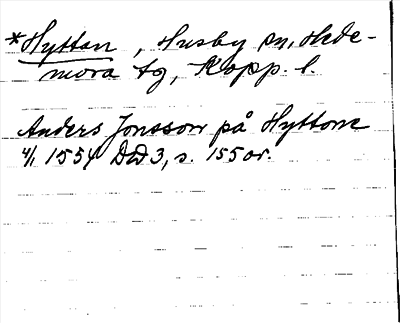 *Hyttan, Husby sn, Hede-
mora tg, Kopp. l.
Anders Jonsson på Hyttone
4/1 1554 DD 3, s. 155 or.